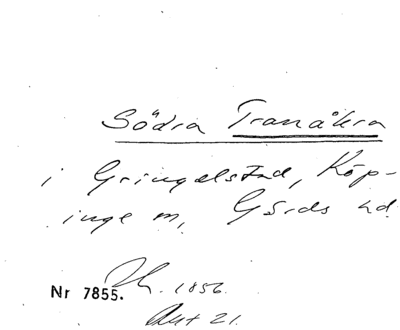 Södra Tranåkra
i Gringelstad, Köp-
inge m, Gärds hd.
Nr 7855. 1856
Akt 21.